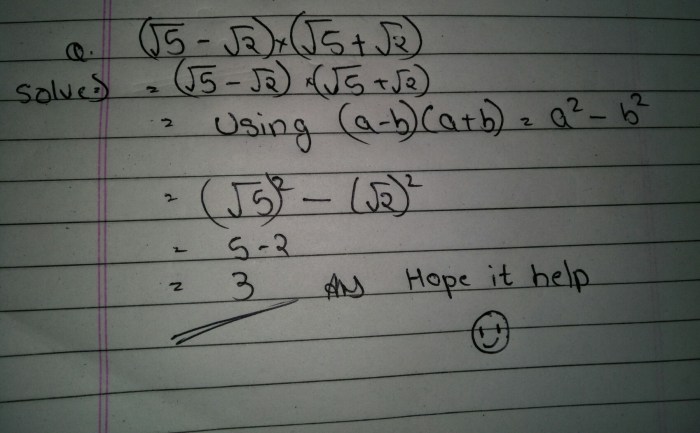 Q. (√5 - √2)×(√5 + √2)
Solve:) = (√5 - √2) ×(√5 + √2)
= Using (a-b)(a+b) = a² - b²
= (√5)² - (√2)²
= 5-2
= 3 Ans Hope it help